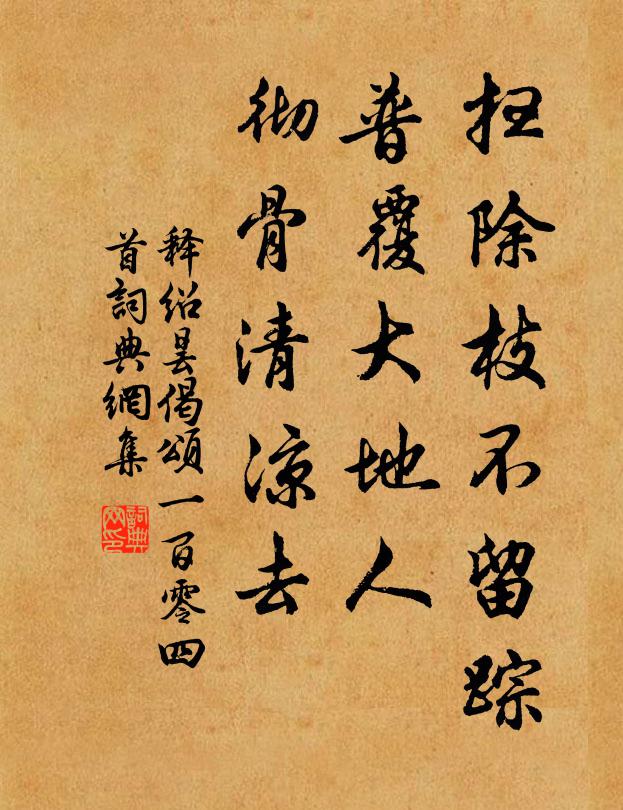 扫除枝不留踪
普覆大地人
彻骨清凉去
释绍昙偈颂一百零四
首詞典網集
詞典
网印